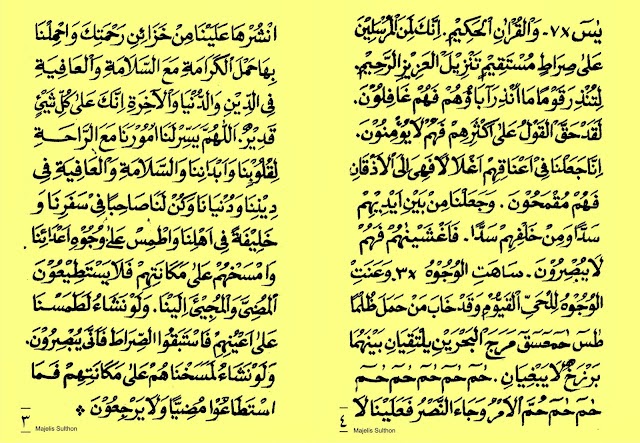 انْشُرْهَا عَلَيْنَا مِنْ خَزَائِنِ رَحْمَتِكَ وَاحْمِلْنَا
بِهَا حَمْلَ الْكَرَامَةِ مَعَ السَّلَامَةِ وَالْعَافِيَةِ
فِي الدِّيْنِ وَالدُّنْيَا وَالْآخِرَةِ اِنَّكَ عَلَى كُلِّ شَيْئٍ
قَدِيْرٌ. اَللّٰهُمَّ يَسِّرْ لَنَا اُمُوْرَنَا مَعَ الرَّاحَةِ
لِقُلُوْبِنَا وَاَبْدَانِنَا وَالسَّلَامَةِ وَالْعَافِيَةِ فِي
دِيْنِنَا وَدُنْيَانَا وَكُنْ لَنَا صَاحِبًا فِي سَفَرِنَا وَ
خَلِيْفَةً فِي اَهْلِنَا وَاطْمِسْ عَلَى وُجُوْهِ اَعْدَائِنَا
وَامْسَخْهُمْ عَلَى مَكَانَتِهِمْ فَلَا يَسْتَطِيْعُوْنَ
الْمُضِيَّ وَالْمَجِيْئَ اِلَيْنَا. وَلَوْ نَشَاءُ لَطَمَسْنَا
عَلَى اَعْيُنِهِمْ فَاسْتَبَقُوا الصِّرَاطَ فَاَنَّى يُبْصِرُوْنَ.
وَلَوْ نَشَاءُ لَمَسَخْنَاهُمْ عَلَى مَكَانَتِهِمْ فَمَا
اسْتَطَاعُوْا مُضِيًّا وَلَا يَرْجِعُوْنَ *
٣
Majelis Sulthon
يٰسٓ ٧x. وَالْقُرْاٰنِ الْحَكِيْمِ. اِنَّكَ لَمِنَ الْمُرْسَلِيْنَ
عَلَى صِرَاطٍ مُسْتَقِيْمٍ تَنْزِيْلَ الْعَزِيْزِ الرَّحِيْمِ.
لِتُنْذِرَ قَوْمًا مَا اُنْذِرَ آبَاؤُهُمْ فَهُمْ غَافِلُوْنَ.
لَقَدْ حَقَّ الْقَوْلُ عَلَى اَكْثَرِهِمْ فَهُمْ لَا يُؤْمِنُوْنَ.
اِنَّا جَعَلْنَا فِي اَعْنَاقِهِمْ اَغْلَالًا فَهِيَ اِلَى الْاَذْقَانِ
فَهُمْ مُقْمَحُوْنَ. وَجَعَلْنَا مِنْ بَيْنِ اَيْدِيْهِمْ
سَدًّا وَمِنْ خَلْفِهِمْ سَدًّا. فَاَغْشَيْنٰهُمْ فَهُمْ
لَا يُبْصِرُوْنَ. شَاهَتِ الْوُجُوْهُ ٣x وَعَنَتِ
الْوُجُوْهُ لِلْحَيِّ الْقَيُّوْمِ وَقَدْ خَابَ مَنْ حَمَلَ ظُلْمًا
طٰسٓ حٰمٓعٓسٓقٓ مَرَجَ الْبَحْرَيْنِ يَلْتَقِيَانِ بَيْنَهُمَا
بَرْزَخٌ لَا يَبْغِيَانِ. حٰمٓ حٰمٓ حٰمٓ حٰمٓ حٰمٓ
حٰمٓ حٰمٓ حُمَّ الْاَمْرُ وَجَاءَ النَّصْرُ فَعَلَيْنَا لَا
٤
Majelis Sulthon